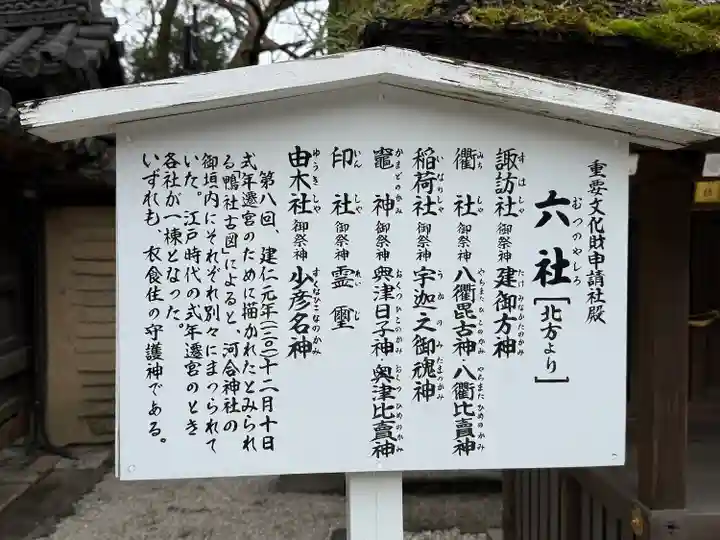 重要文化財申請社殿
六社[北方より]
むつのやしろ
諏訪社 御祭神 建御方神
すはしや たけみなかたのかみ
衢社 御祭神 八衢毘古神 八衢比賣神
みちしや やちまたひこのかみ やちまたひめのかみ
稲荷社 御祭神 宇迦之御魂神
いなりのしや うかのみたまのかみ
竈神 御祭神 奥津日子神・奥津比賣神
かまどのかみ おくつひこのかみ おくつひめのかみ
印社 御祭神 霊璽
いんしや れいじ
由木社 御祭神 少彦名神
ゆうきしや すくなひこなのかみ
第八回、建仁元年(一二〇一)十二月十日
式年遷宮のために描かれたとみられ
る「鴨社古図」によると、河合神社の
御垣内にそれぞれ別々にまつられて
いた。江戸時代の式年遷宮のとき
各社が一棟となった。
いずれも、衣食住の守護神である。